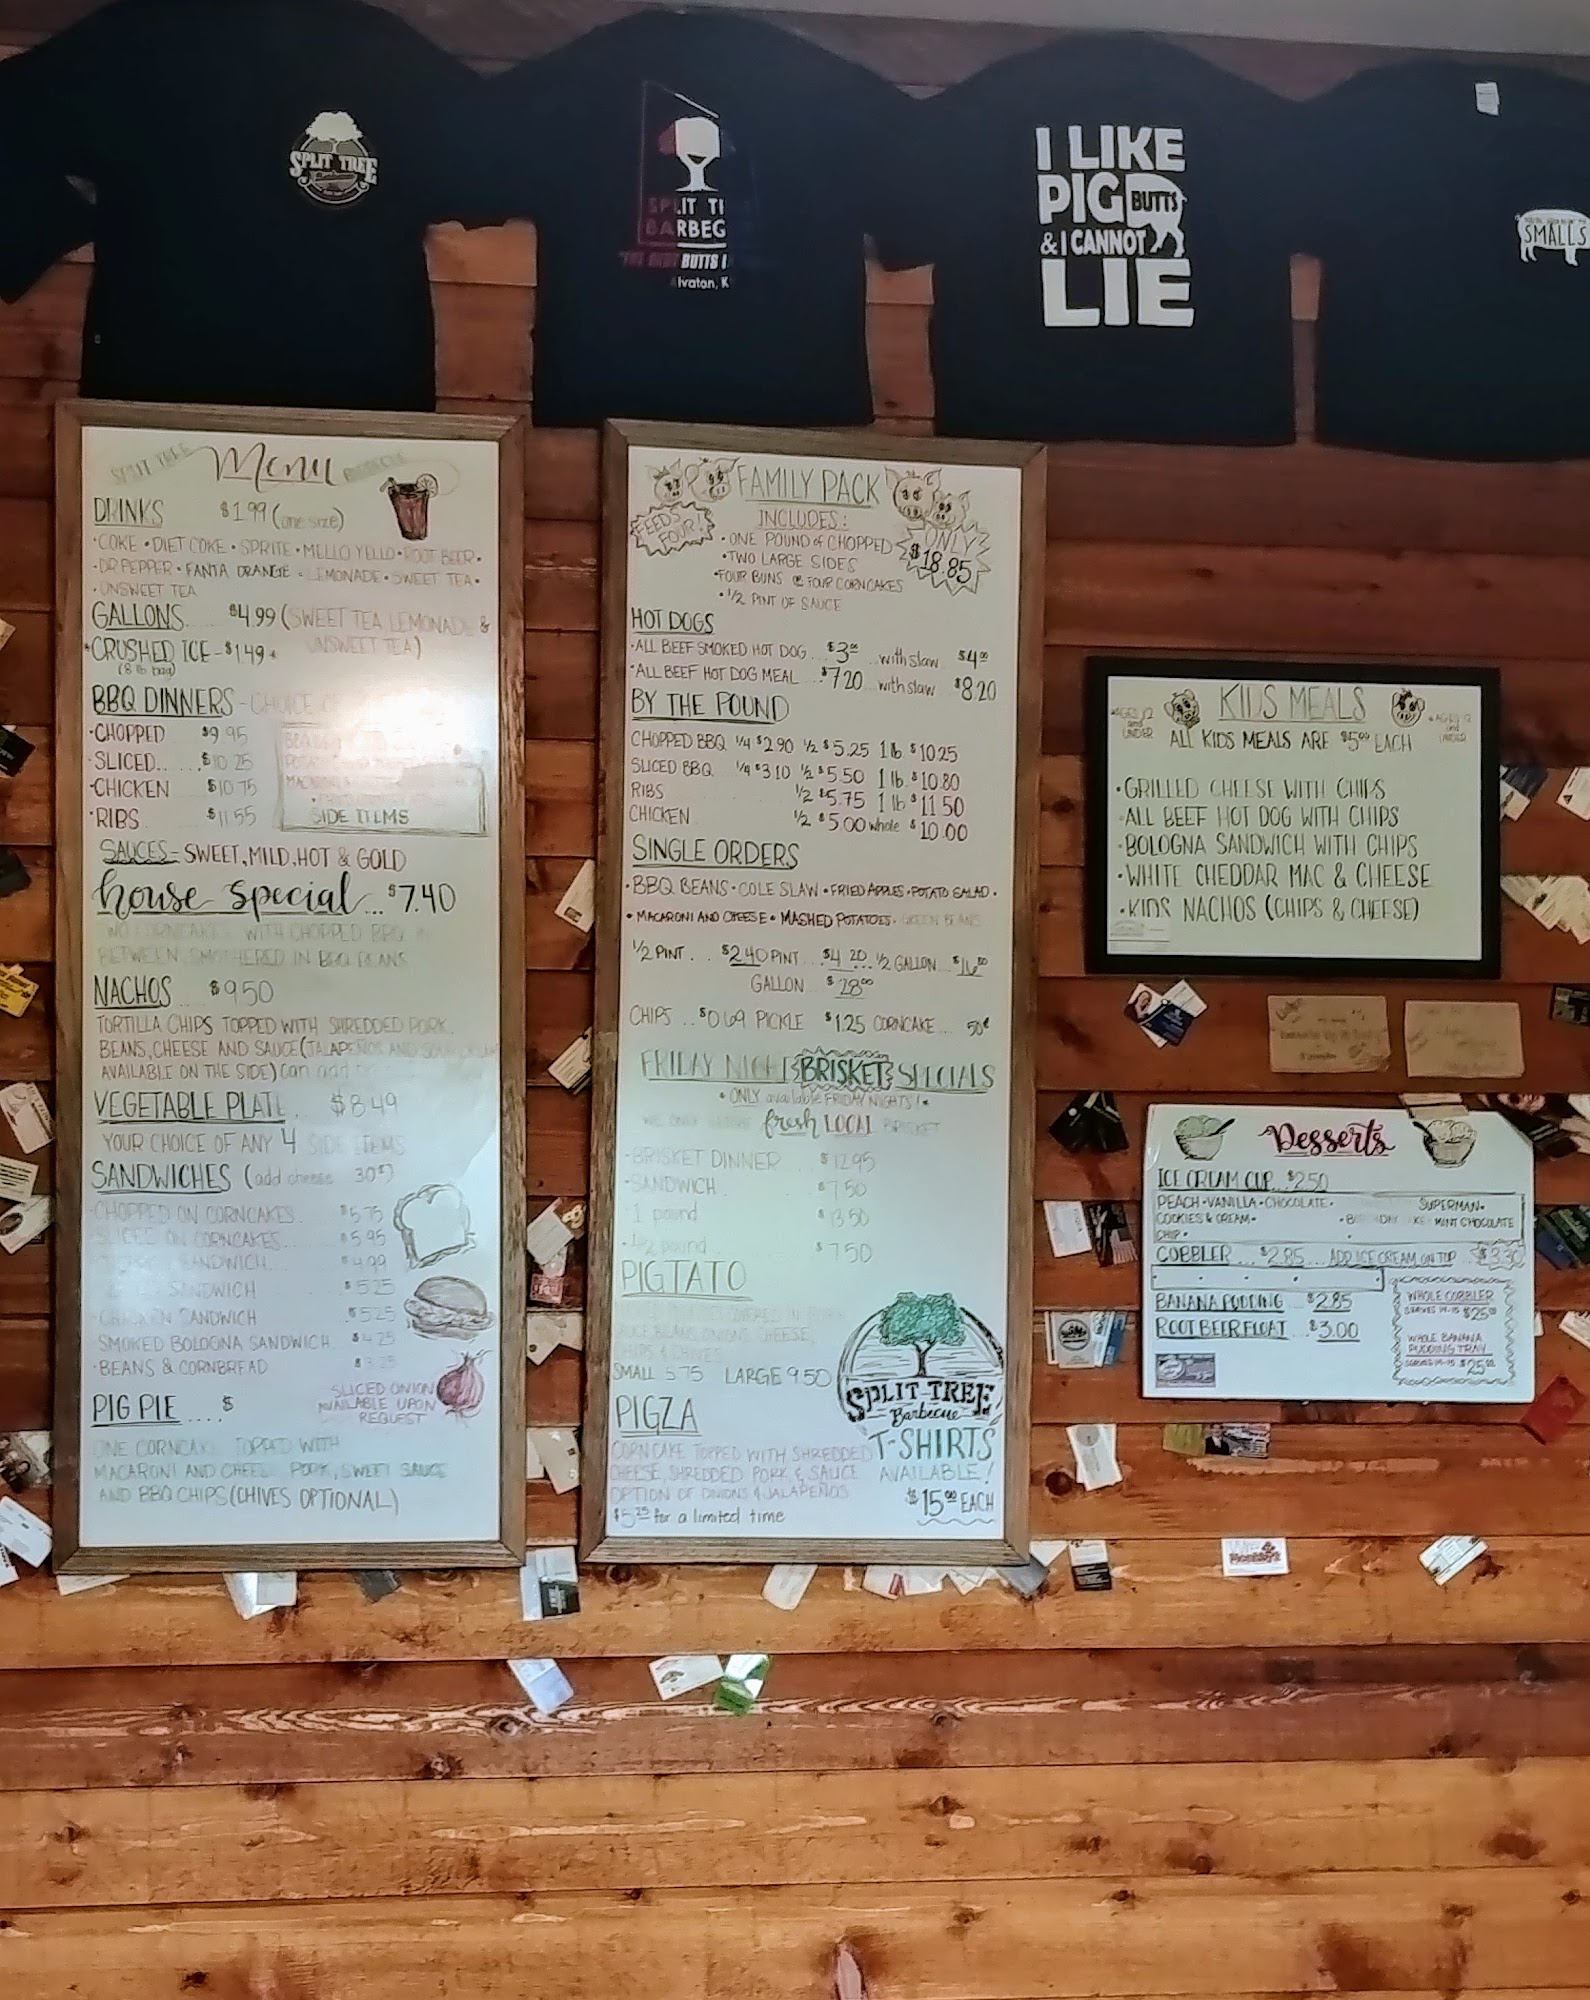 SPLIT TREE
SPLIT TI
BARBEG
BUTTS I
lvaton, K
I LIKE
PIG BUTTS
& I CANNOT
LIE
SMALLS
SPLIT TREE Menu
DRINKS $1.99 (one size)
•COKE •DIET COKE •SPRITE •MELLO YELLO •ROOT BEER•
•DR PEPPER •FANTA ORANGE •LEMONADE •SWEET TEA•
•UNSWEET TEA
GALLONS..... $4.99 (SWEET TEA LEMONADE &
UNSWEET TEA)
*CRUSHED ICE - $1.49*
(8 lb bag)
BBQ DINNERS - CHOICE
•CHOPPED $9.95
•SLICED...... $10.25
•CHICKEN $10.75
•RIBS $11.55
SIDE ITEMS
SAUCES - SWEET, MILD, HOT & GOLD
house special... $7.40
TWO CORNCAKES WITH CHOPPED BBQ IN
BETWEEN SMOTHERED IN BBQ BEANS
NACHOS..... $9.50
TORTILLA CHIPS TOPPED WITH SHREDDED PORK,
BEANS, CHEESE AND SAUCE (JALAPEÑOS AND SOUR CREAM
AVAILABLE ON THE SIDE) can add
VEGETABLE PLATE.. $8.49
YOUR CHOICE OF ANY 4 SIDE ITEMS
SANDWICHES (add cheese 30¢)
•CHOPPED ON CORNCAKES... $5.75
•SLICED ON CORNCAKES... $5.95
SANDWICH... $4.99
SANDWICH $5.25
•CHICKEN SANDWICH $5.25
SMOKED BOLOGNA SANDWICH $4.25
•BEANS & CORNBREAD $3.25
SLICED ONION
AVAILABLE UPON
REQUEST
PIG PIE ..... $
ONE CORNCAKE TOPPED WITH
MACARONI AND CHEESE PORK, SWEET SAUCE
AND BBQ CHIPS (CHIVES OPTIONAL)
FAMILY PACK
FEEDS
FOUR!
INCLUDES:
• ONE POUND of CHOPPED
• TWO LARGE SIDES
•FOUR BUNS or FOUR CORNCAKES
• 1/2 PINT OF SAUCE
ONLY
$18.85
HOT DOGS
•ALL BEEF SMOKED HOT DOG ...$3.00 ...with slaw $4.00
•ALL BEEF HOT DOG MEAL ...$7.20 ...with slaw $8.20
BY THE POUND
CHOPPED BBQ 1/4 $2.90 1/2 $5.25 1 lb $10.25
SLICED BBQ 1/4 $3.10 1/2 $5.50 1 lb $10.80
RIBS 1/2 $5.75 1 lb $11.50
CHICKEN 1/2 $5.00 whole $10.00
SINGLE ORDERS
• BBQ BEANS • COLE SLAW • FRIED APPLES • POTATO SALAD •
• MACARONI AND CHEESE • MASHED POTATOES • GREEN BEANS
1/2 PINT... $2.40 PINT...$4.20 1/2 GALLON... $16.00
GALLON $28.00
CHIPS ...$0.69 PICKLE $1.25 CORNCAKE... 50¢
FRIDAY NIGHT BRISKET SPECIALS
• ONLY available FRIDAY NIGHTS! •
fresh LOCAL BRISKET
•BRISKET DINNER $12.95
•SANDWICH $7.50
1 pound $13.50
•1/2 pound $7.50
PIGTATO
BEANS ONIONS CHEESE
CHIPS & CHIVES
SMALL 5.75 LARGE 9.50
PIGZA
CORNCAKE TOPPED WITH SHREDDED
CHEESE, SHREDDED PORK, & SAUCE
OPTION OF ONIONS & JALAPEÑOS
$5.25 for a limited time
SPLIT TREE
Barbecue
T-SHIRTS
AVAILABLE!
$15.00 EACH
KIDS MEALS
*AGES 12
and
UNDER
*AGES 12
and
UNDER
ALL KIDS MEALS ARE $5.00 EACH
•GRILLED CHEESE WITH CHIPS
•ALL BEEF HOT DOG WITH CHIPS
•BOLOGNA SANDWICH WITH CHIPS
•WHITE CHEDDAR MAC & CHEESE
•KIDS NACHOS (CHIPS & CHEESE)
Desserts
ICE CREAM CUP...$2.50
PEACH•VANILLA•CHOCOLATE• SUPERMAN•
COOKIES & CREAM• •BIRTHDAY CAKE• MINT CHOCOLATE
CHIP •
COBBLER ....$2.85... ADD ICE CREAM ON TOP $3.30
BANANA PUDDING ...$2.85
ROOT BEER FLOAT ...$3.00
WHOLE COBBLER
SERVES 14-15 $25.00
WHOLE BANANA
PUDDING TRAY
SERVES 14-15 $25.00